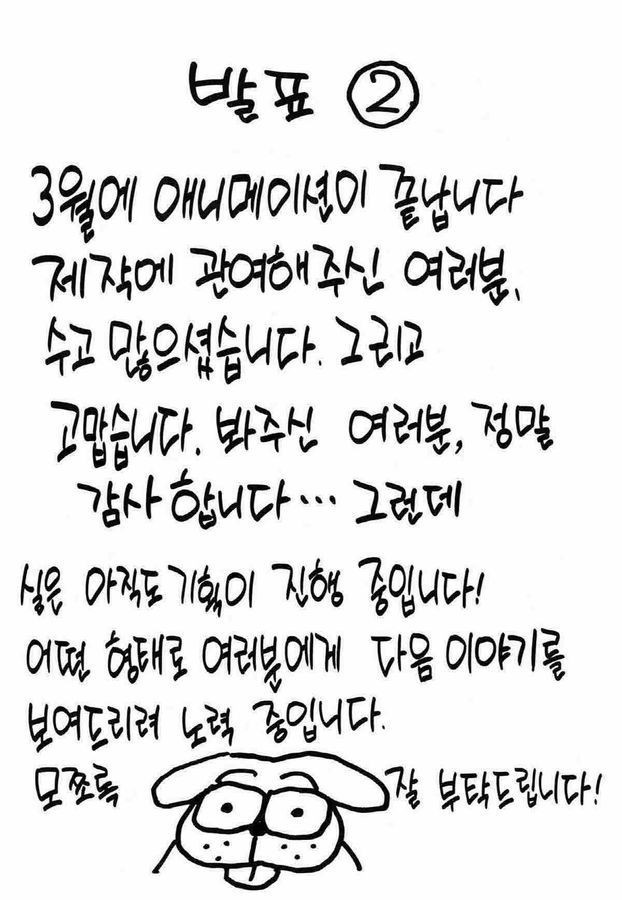 발표 ②
3월에 애니메이션이 끝납니다
제작에 관여해주신 여러분,
수고 많으셨습니다. 그리고
고맙습니다. 봐주신 여러분, 정말
감사합니다… 그런데
실은 아직도 기획이 진행 중입니다!
어떤 형태로 여러분에게 다음 이야기를
보여드리려 노력 중입니다.
모쪼록 잘 부탁드립니다!